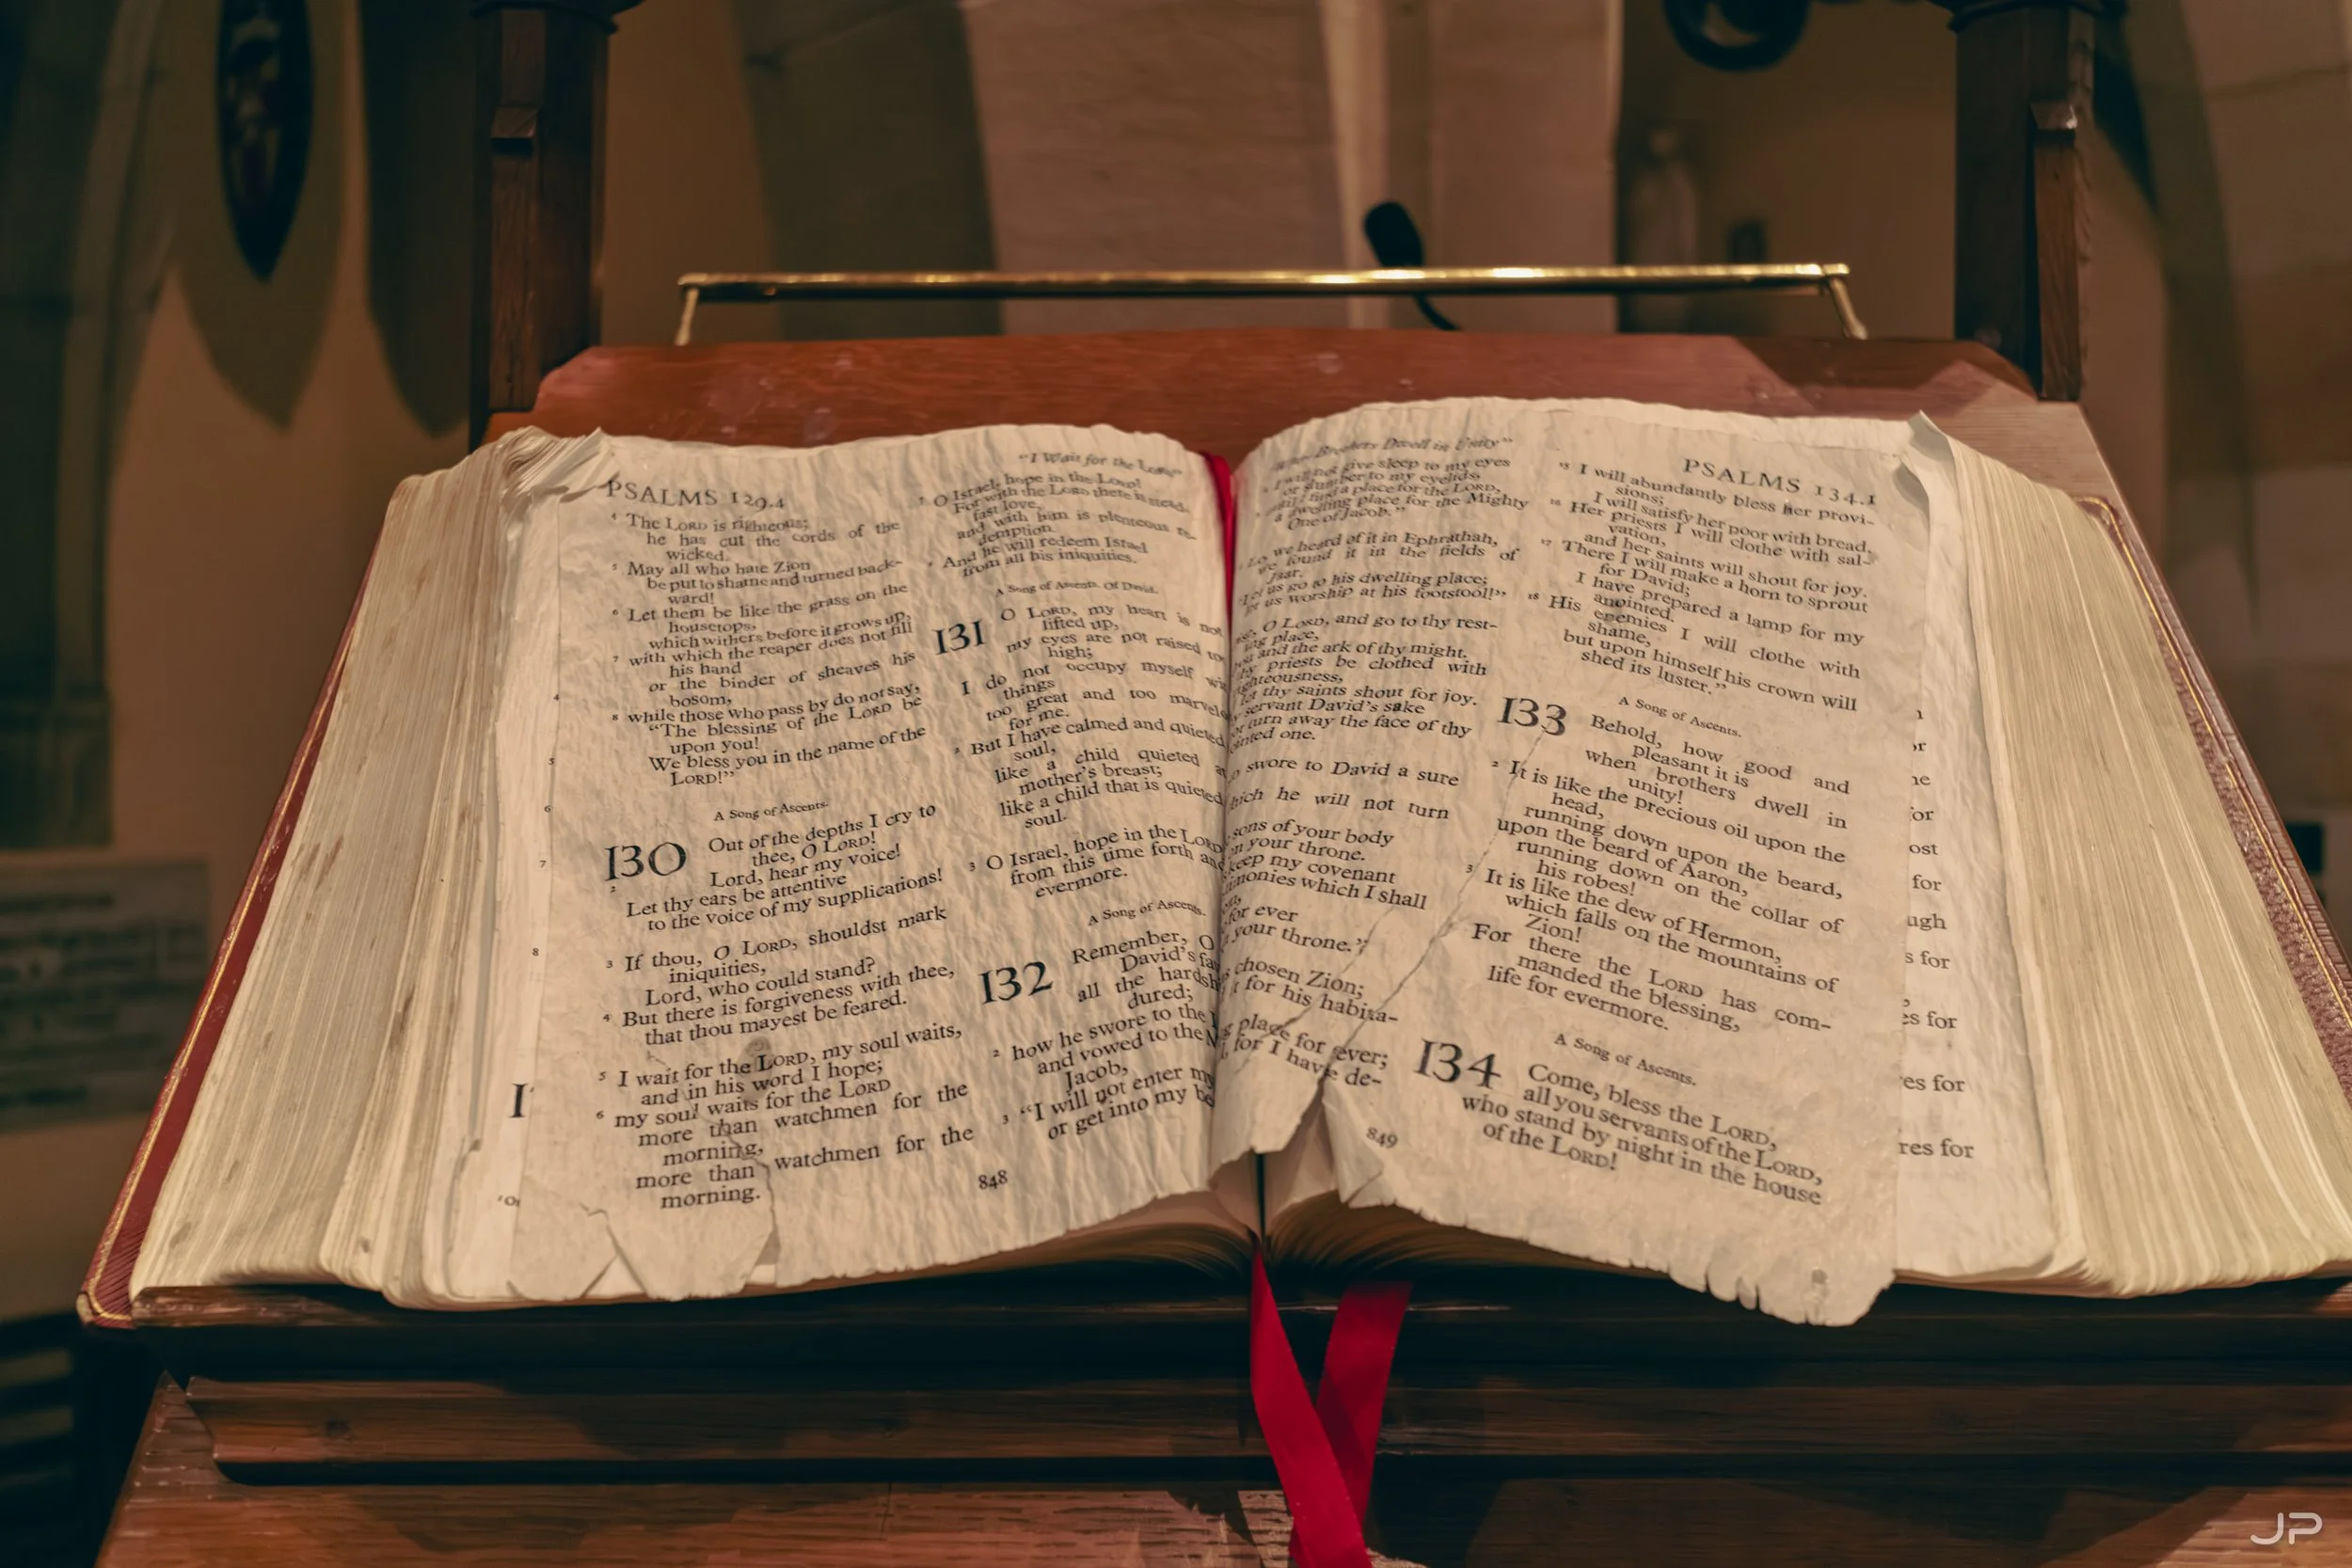 PSALMS 129.4
4 The LORD is righteous;
he has cut the cords of the
wicked.
5 May all who hate Zion
be put to shame and turned back-
ward!
6 Let them be like the grass on the
housetops,
which withers before it grows up,
7 with which the reaper does not fill
his hand
or the binder of sheaves his
bosom,
8 while those who pass by do not say,
"The blessing of the LORD be
upon you!
We bless you in the name of the
LORD!"
A Song of Ascents.
130 Out of the depths I cry to
thee, O LORD!
Lord, hear my voice!
2
Let thy ears be attentive
to the voice of my supplications!
3 If thou, O LORD, shouldst mark
iniquities,
Lord, who could stand?
4 But there is forgiveness with thee,
that thou mayest be feared.
5 I wait for the LORD, my soul waits,
and in his word I hope;
6 my soul waits for the LORD
more than watchmen for the
morning,
more than watchmen for the
morning.
"I Wait for the LORD"
7 O Israel, hope in the LORD!
For with the LORD there is stead-
fast love,
and with him is plenteous re-
demption.
8 And he will redeem Israel
from all his iniquities.
A Song of Ascents. Of David.
131 O LORD, my heart is not
lifted up,
my eyes are not raised too
high;
I do not occupy myself
things
too great and too
for me.
2 But I have calmed and quieted
soul,
like a child quieted
mother's breast;
like a child that is quieted
soul.
3 O Israel, hope in the LORD
from this time forth and
evermore.
A Song of Ascents.
132 Remember, O
David's
all the
dured;
2 how he swore to the
and vowed to the
Jacob,
3 "I will not enter my
or get into my
848
Brothers Dwell in Unity"
I will not give sleep to my eyes
or slumber to my eyelids,
until I find a place for the LORD,
a dwelling place for the Mighty
One of Jacob."
Lo, we heard of it in Ephrathah,
we found it in the fields of
Jaar.
"Let us go to his dwelling place;
let us worship at his footstool!"
O LORD, and go to thy rest-
ing place,
and the ark of thy might.
priests be clothed with
thy saints shout for joy.
servant David's sake
turn away the face of thy
one.
swore to David a sure
he will not turn
sons of your body
your throne.
keep my covenant
which I shall
for ever
your throne."
chosen Zion;
for his habita-
place for ever;
for I have de-
849
PSALMS 134.1
15 I will abundantly bless her provi-
sions;
I will satisfy her poor with bread.
16 Her priests I will clothe with sal-
vation,
and her saints will shout for joy.
17 There I will make a horn to sprout
for David;
I have prepared a lamp for my
anointed.
18 His enemies I will clothe with
shame,
but upon himself his crown will
shed its luster."
A Song of Ascents.
133 Behold, how good and
pleasant it is
when brothers dwell in
unity!
2 It is like the precious oil upon the
head,
running down upon the beard,
upon the beard of Aaron,
running down on the collar of
his robes!
3 It is like the dew of Hermon,
which falls on the mountains of
Zion!
For there the LORD has com-
manded the blessing,
life for evermore.
A Song of Ascents.
134 Come, bless the LORD,
all you servants of the LORD,
who stand by night in the house
of the LORD!
for
for
for
for
for
JP